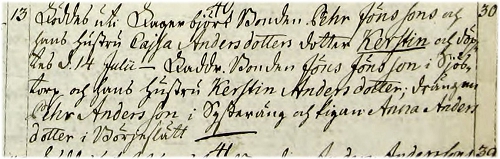 13 Föddes uti Ragarbjört Bonden Pehr Jönssons och 30
hans Hustru Cajsa Andersdotters dotter Kerstin och döp
tes d. 14 Julii – Faddr. Bonden Jöns Jönsson i Sjöt
torp och hans Hustru Kerstin Andersdotter, drängen
Pehr Andersson i Systeräng och pigan Anna Anders
dotter i Börjeslätt